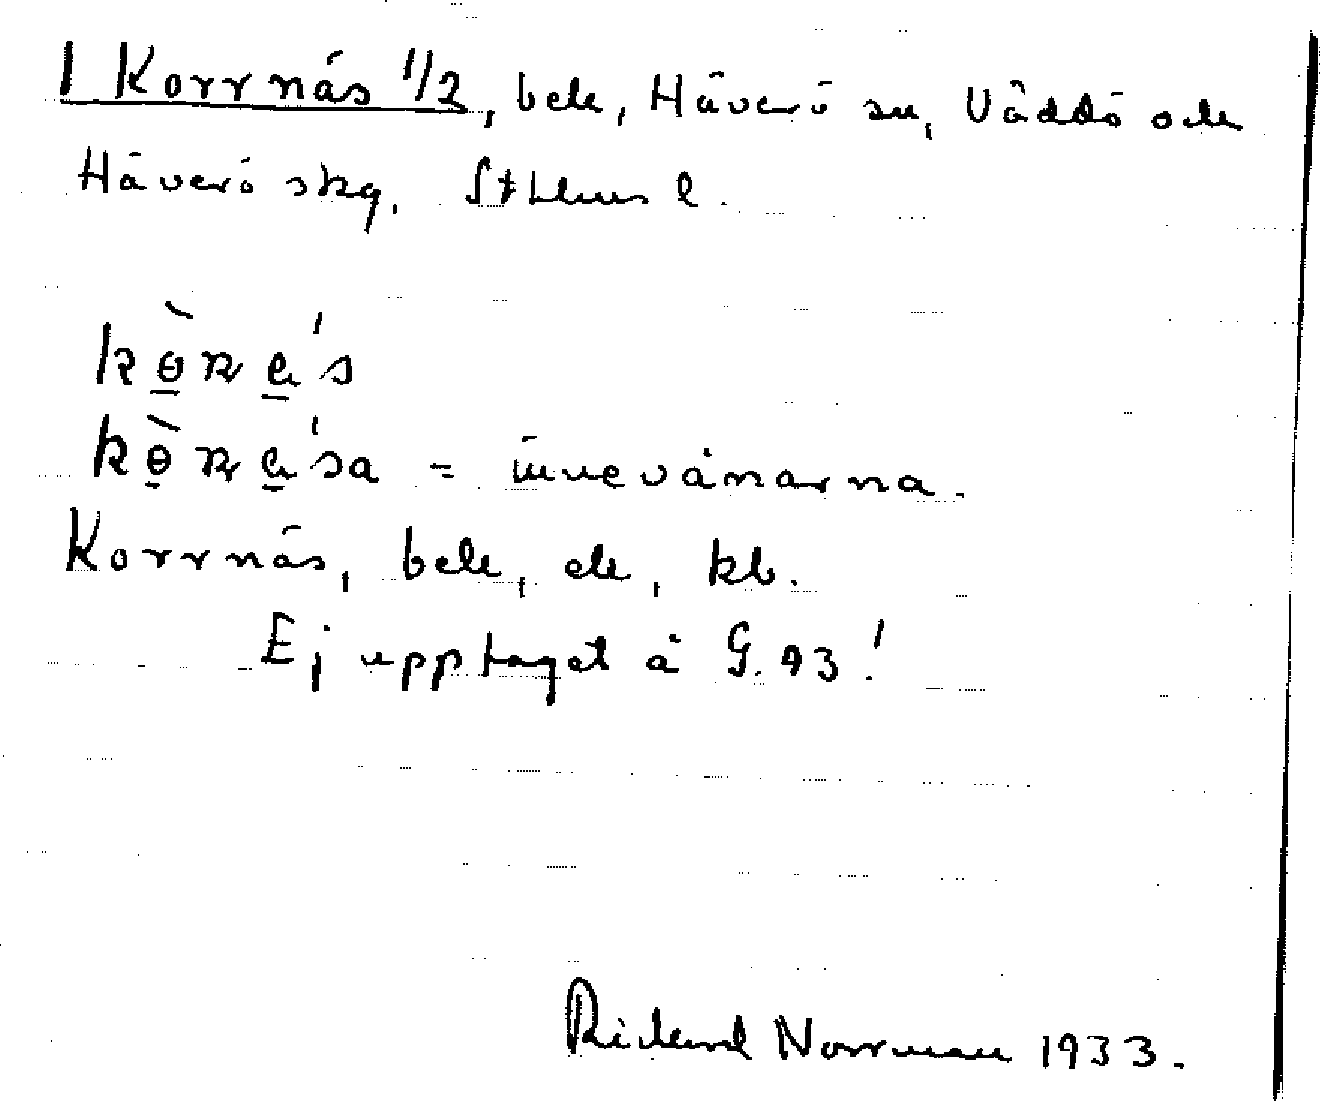 1 Korrnäs 1/2, beb., Häverö sn, Väddö och
Häverö skg. Sthlms l.
kɵ̀ṉa̱'s
kɵ̀ṉa̱'sa = innevånarna.
Korrnäs, beb., ek, kb.
Ej upptaget å G. 93!
Rickard Norrman 1933.